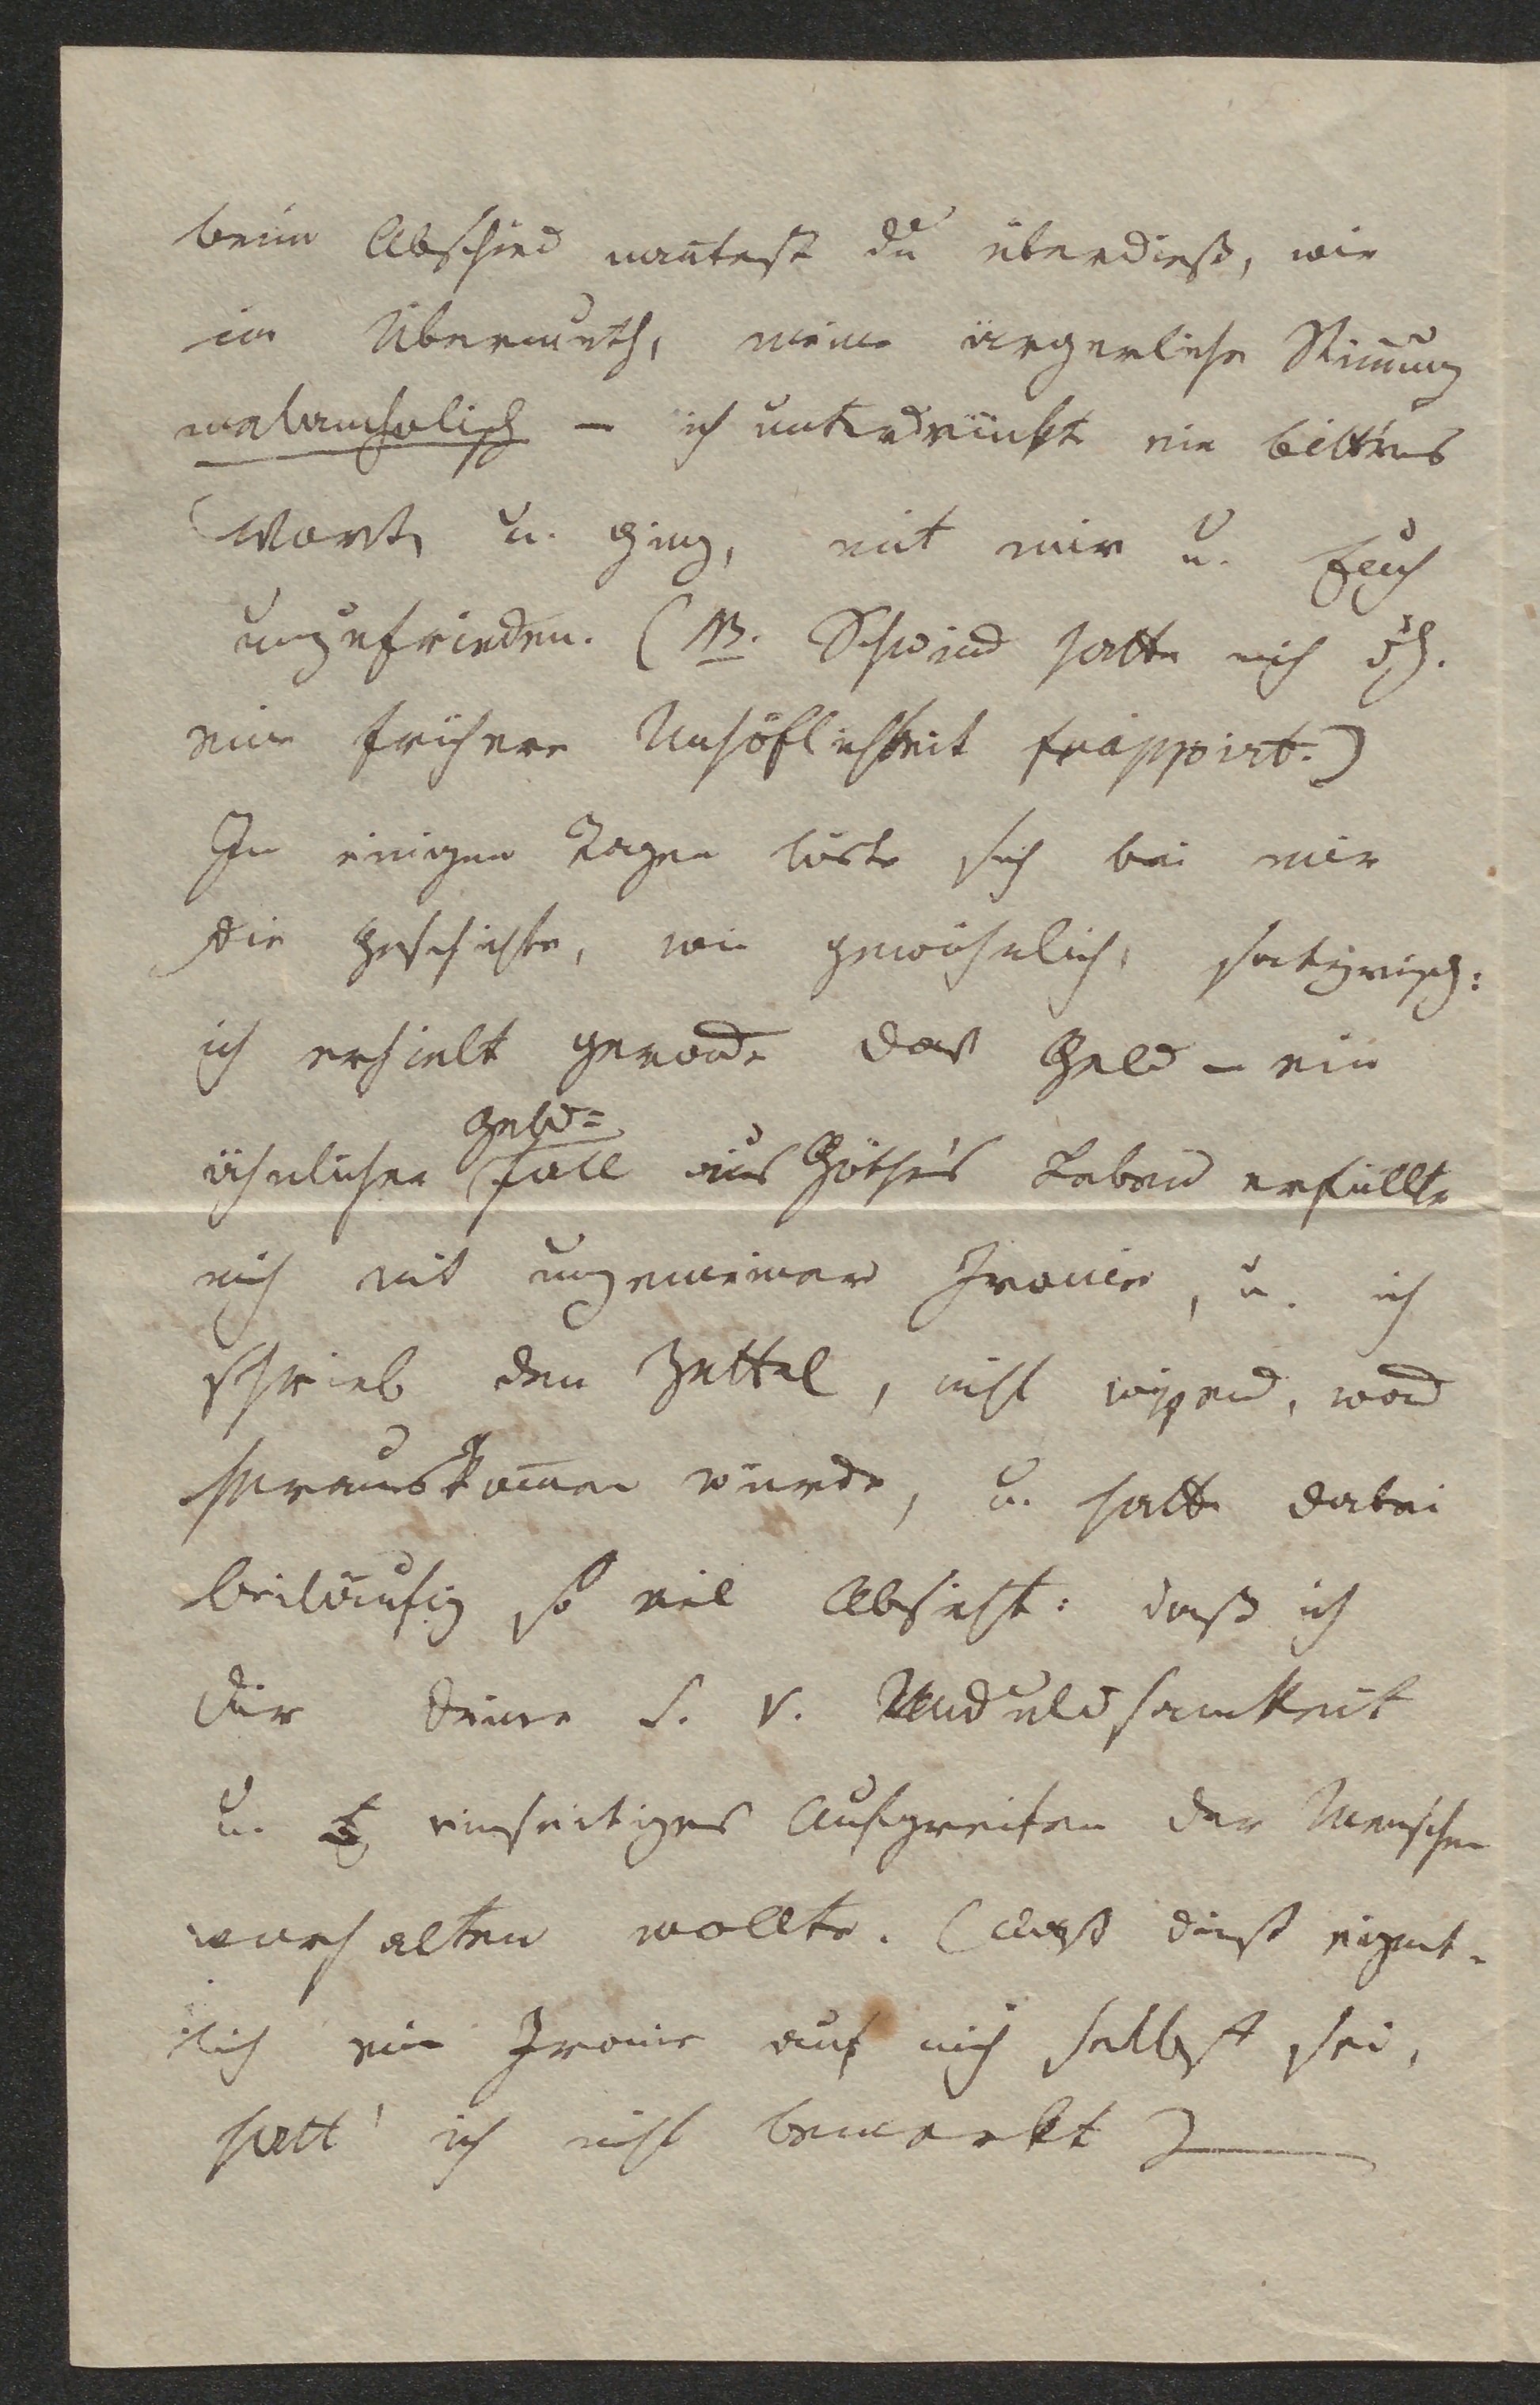 beim Abschied nan̄test du überdieß, wie
im Übermuth, meine ärgerliche Stim̄ung
melancholisch – ich unterdrückte ein bitt'res
Wort, u. ging, mit mir u. Euch
unzufrieden. (NB. Schwind hatte mich dch.
eine frühere Unhöflichkeit frappirt.)
In einigen Tagen löste sich bei mir
die Geschichte, wie gewöhnlich, satyrisch:
ich erhielt gerade das Geld – ein
Geld=
ähnlicher Fall aus Göthe's Leben erfüllte
mich mit ungemeiner Ironie, u. ich
schrieb den Zettel, nicht wissend, was
herauskom̄en würde, u. hatte dabei
beiläufig so viel Absicht: daß ich
dir deine s. v. Unduldsamkeit
u. einseitiges Aufgreifen der Menschen
vorhalten wollte. (Daß dieß eigent-
lich eine Ironie auf mich selbst sei,
hatt' ich nicht bemerkt)